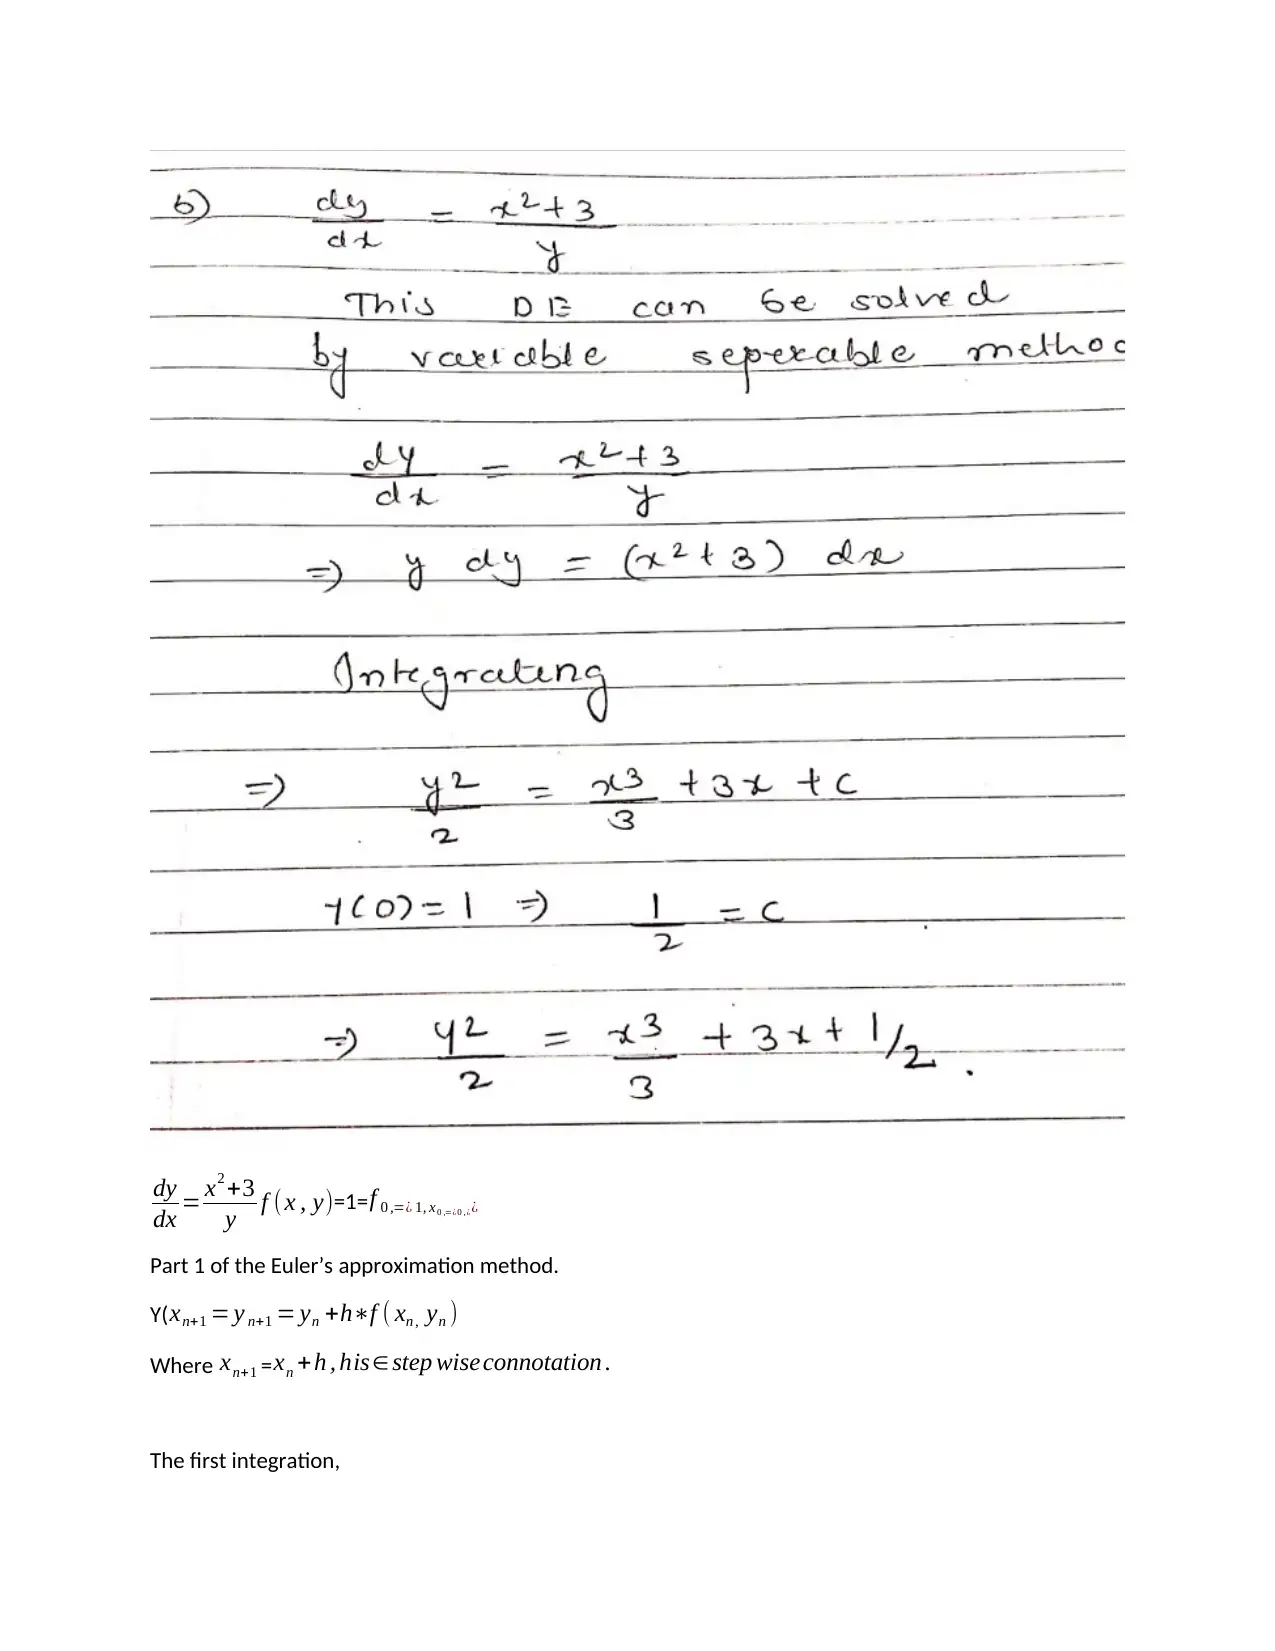 b) dy/dx = x²+3/y
This DE can be solved
by variable seperable method
dy/dx = x²+3/y
=) y dy = (x²+3) dx
Integrating
=) y²/2 = x³/3 + 3x + c
Y(0) = 1 =) 1/2 = c
=) y²/2 = x³/3 + 3x + 1/2 .
dy/dx = x²+3/y f(x, y)=1=f 0,=¿ 1, x0,=¿0,¿¿
Part 1 of the Euler’s approximation method.
Y(xn+1 = yn+1 = yn +h∗f (xn, yn)
Where xn+1 =xn +h , h is∈ step wise connotation .
The first integration,